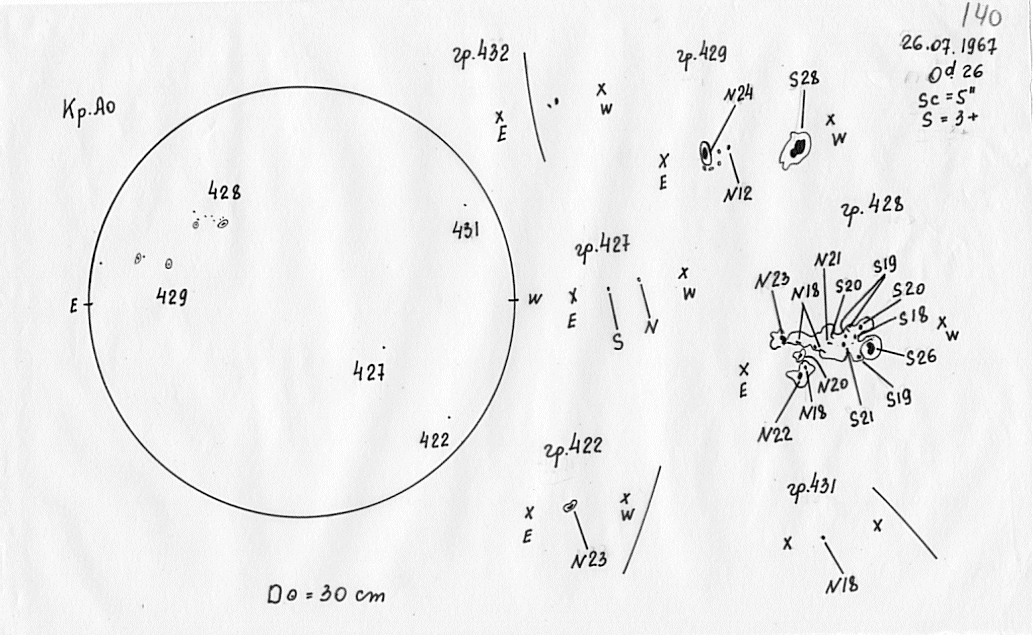 140
26.07.1967
0d 26
Sc = 5"
S = 3+
Кр.АО
428
431
E
W
429
427
422
D⊙ = 30 cm
гр.432
X
E
X
W
гр.429
N24
S28
X
E
X
W
N12
гр.427
X
E
X
W
S
N
гр.428
N23
N18
N21
S20
S19
S20
S18
X
W
S26
X
E
N20
S19
N18
S21
N22
гр.422
X
E
X
W
N23
гр.431
X
X
N18